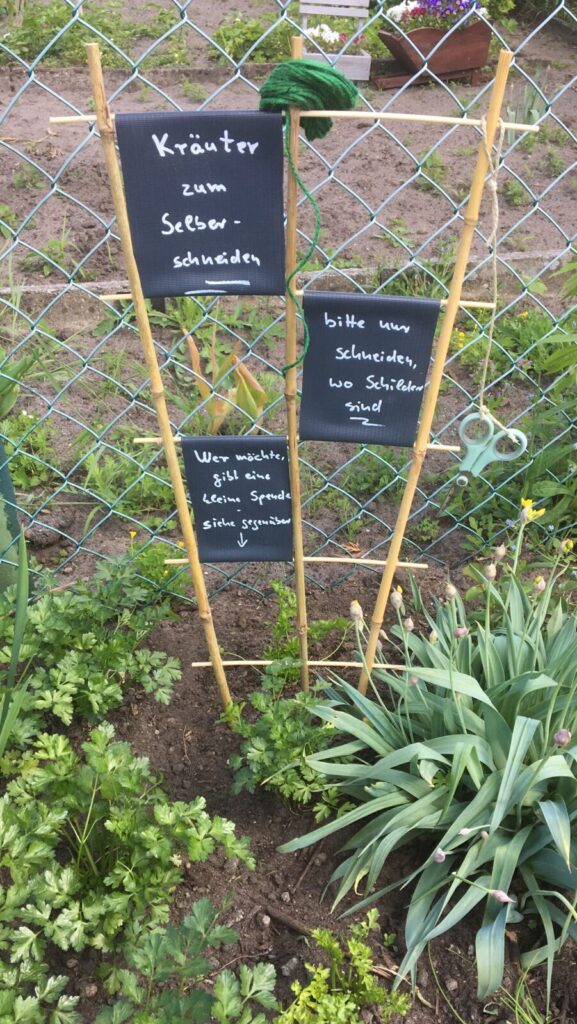 Kräuter
zum
Selber-
schneiden
bitte nur
schneiden,
wo Schilder
sind
Wer möchte,
gibt eine
kleine Spende
-
siehe gegenüber
↓